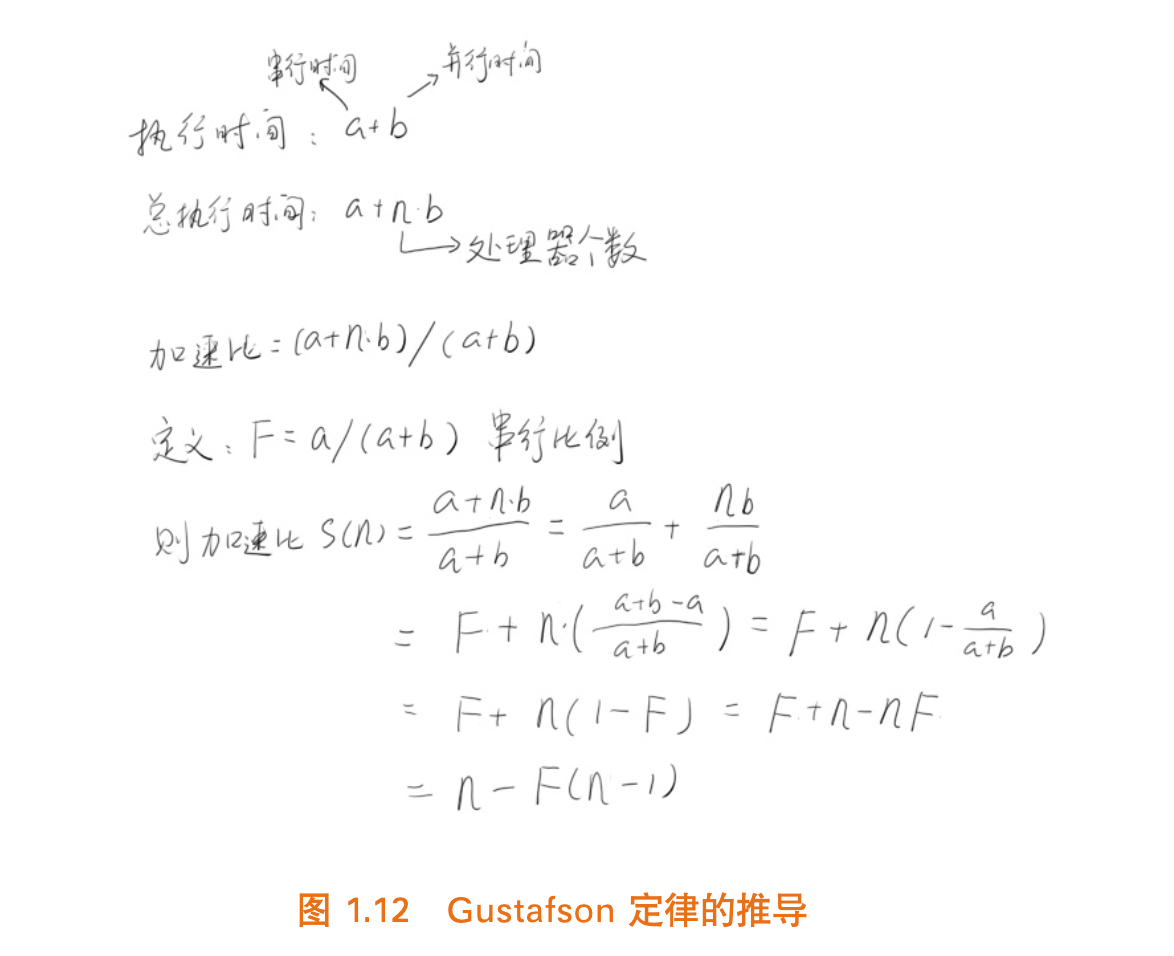 串行时间 并行时间
执行时间：a+b
总执行时间：a+n·b
处理器个数
加速比=(a+n·b)/(a+b)
定义：F=a/(a+b) 串行比例
则加速比 S(n)=\frac{a+n·b}{a+b}=\frac{a}{a+b}+\frac{nb}{a+b}
=F+n·(\frac{a+b-a}{a+b})=F+n(1-\frac{a}{a+b})
=F+n(1-F)=F+n-nF
=n-F(n-1)
图 1.12 Gustafson 定律的推导